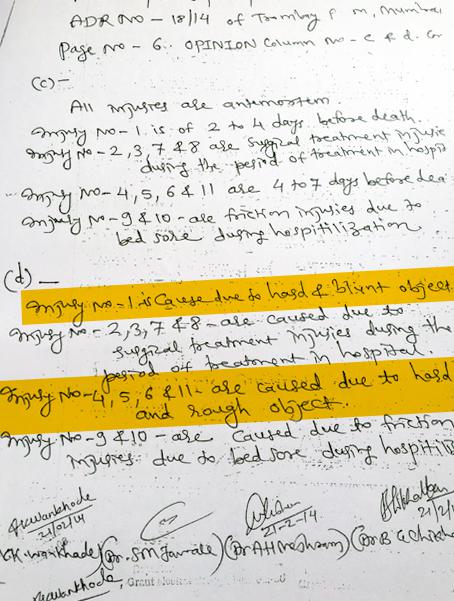 ADR NO - 18/14 of Trombay P. m, Mumbai
Page No - 6. OPINION Column No - c & d.
(c) -
All injuries are antemortem
Injury No - 1 is of 2 to 4 days before death.
Injury No - 2, 3, 7 & 8 are surgical treatment injurie
during the period of treatment in hospit
Injury No - 4, 5, 6 & 11 are 4 to 7 days before dea
Injury No - 9 & 10 - are friction injuries due to
bed sore during hospitilization
(d) -
Injury No - 1 is Cause due to hard & blunt object
Injury No - 2, 3, 7 & 8 - are caused due to
surgical treatment injuries during the
period of treatment in hospital.
Injury No - 4, 5, 6 & 11 - are caused due to hard
and rough object.
Injury No - 9 & 10 - are Caused due to friction
injuries due to bed sore during hospitilis
Wankhade
21/02/14
21-2-14
21/2/1
K. Wankhade) (Dr. S.M (Dr A H Meshram) (Dr B G
Wankhade,